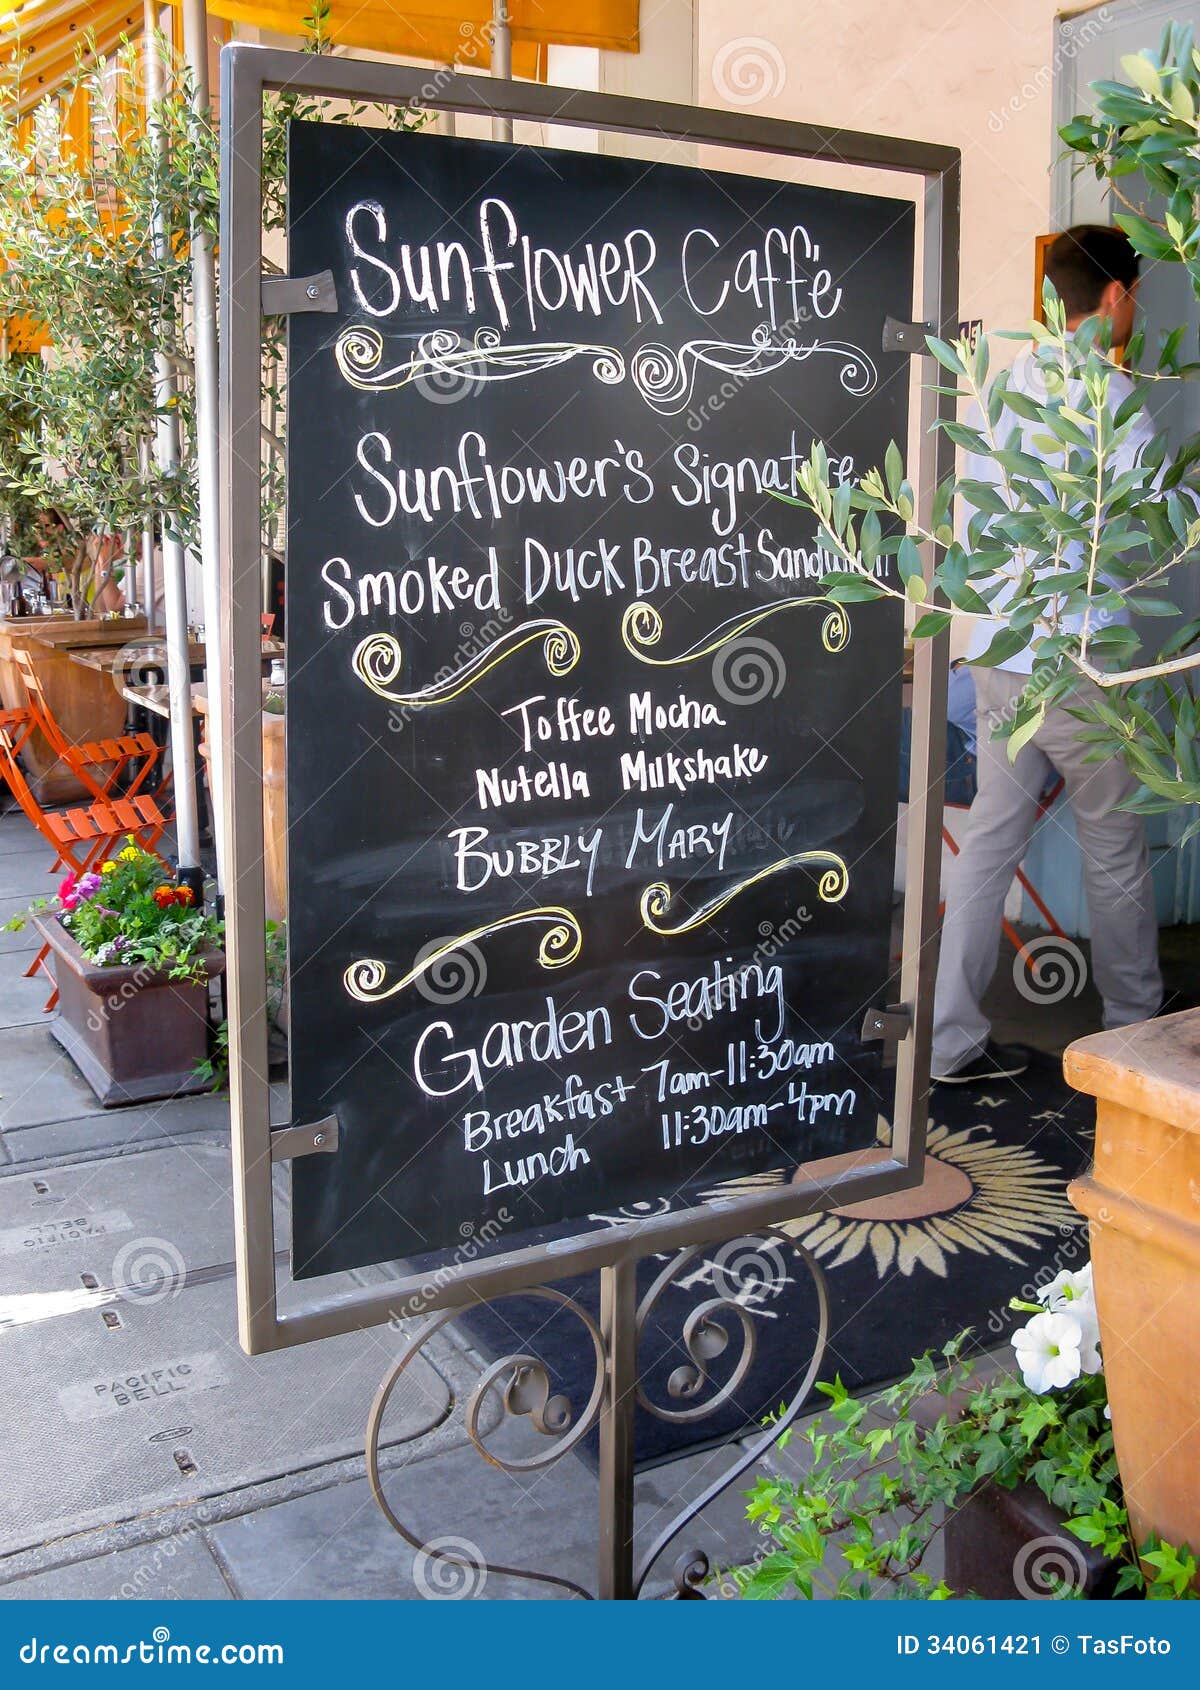 Sunflower Caffé
Sunflower's Signature
Smoked Duck Breast Sandwich
Toffee Mocha
Nutella Milkshake
BUBBLY MARY
Garden Seating
Breakfast 7am-11:30am
Lunch 11:30am-4pm
PACIFIC
BELL
PACIFIC
BELL
dreamstime.com
ID 34061421 © TasFoto